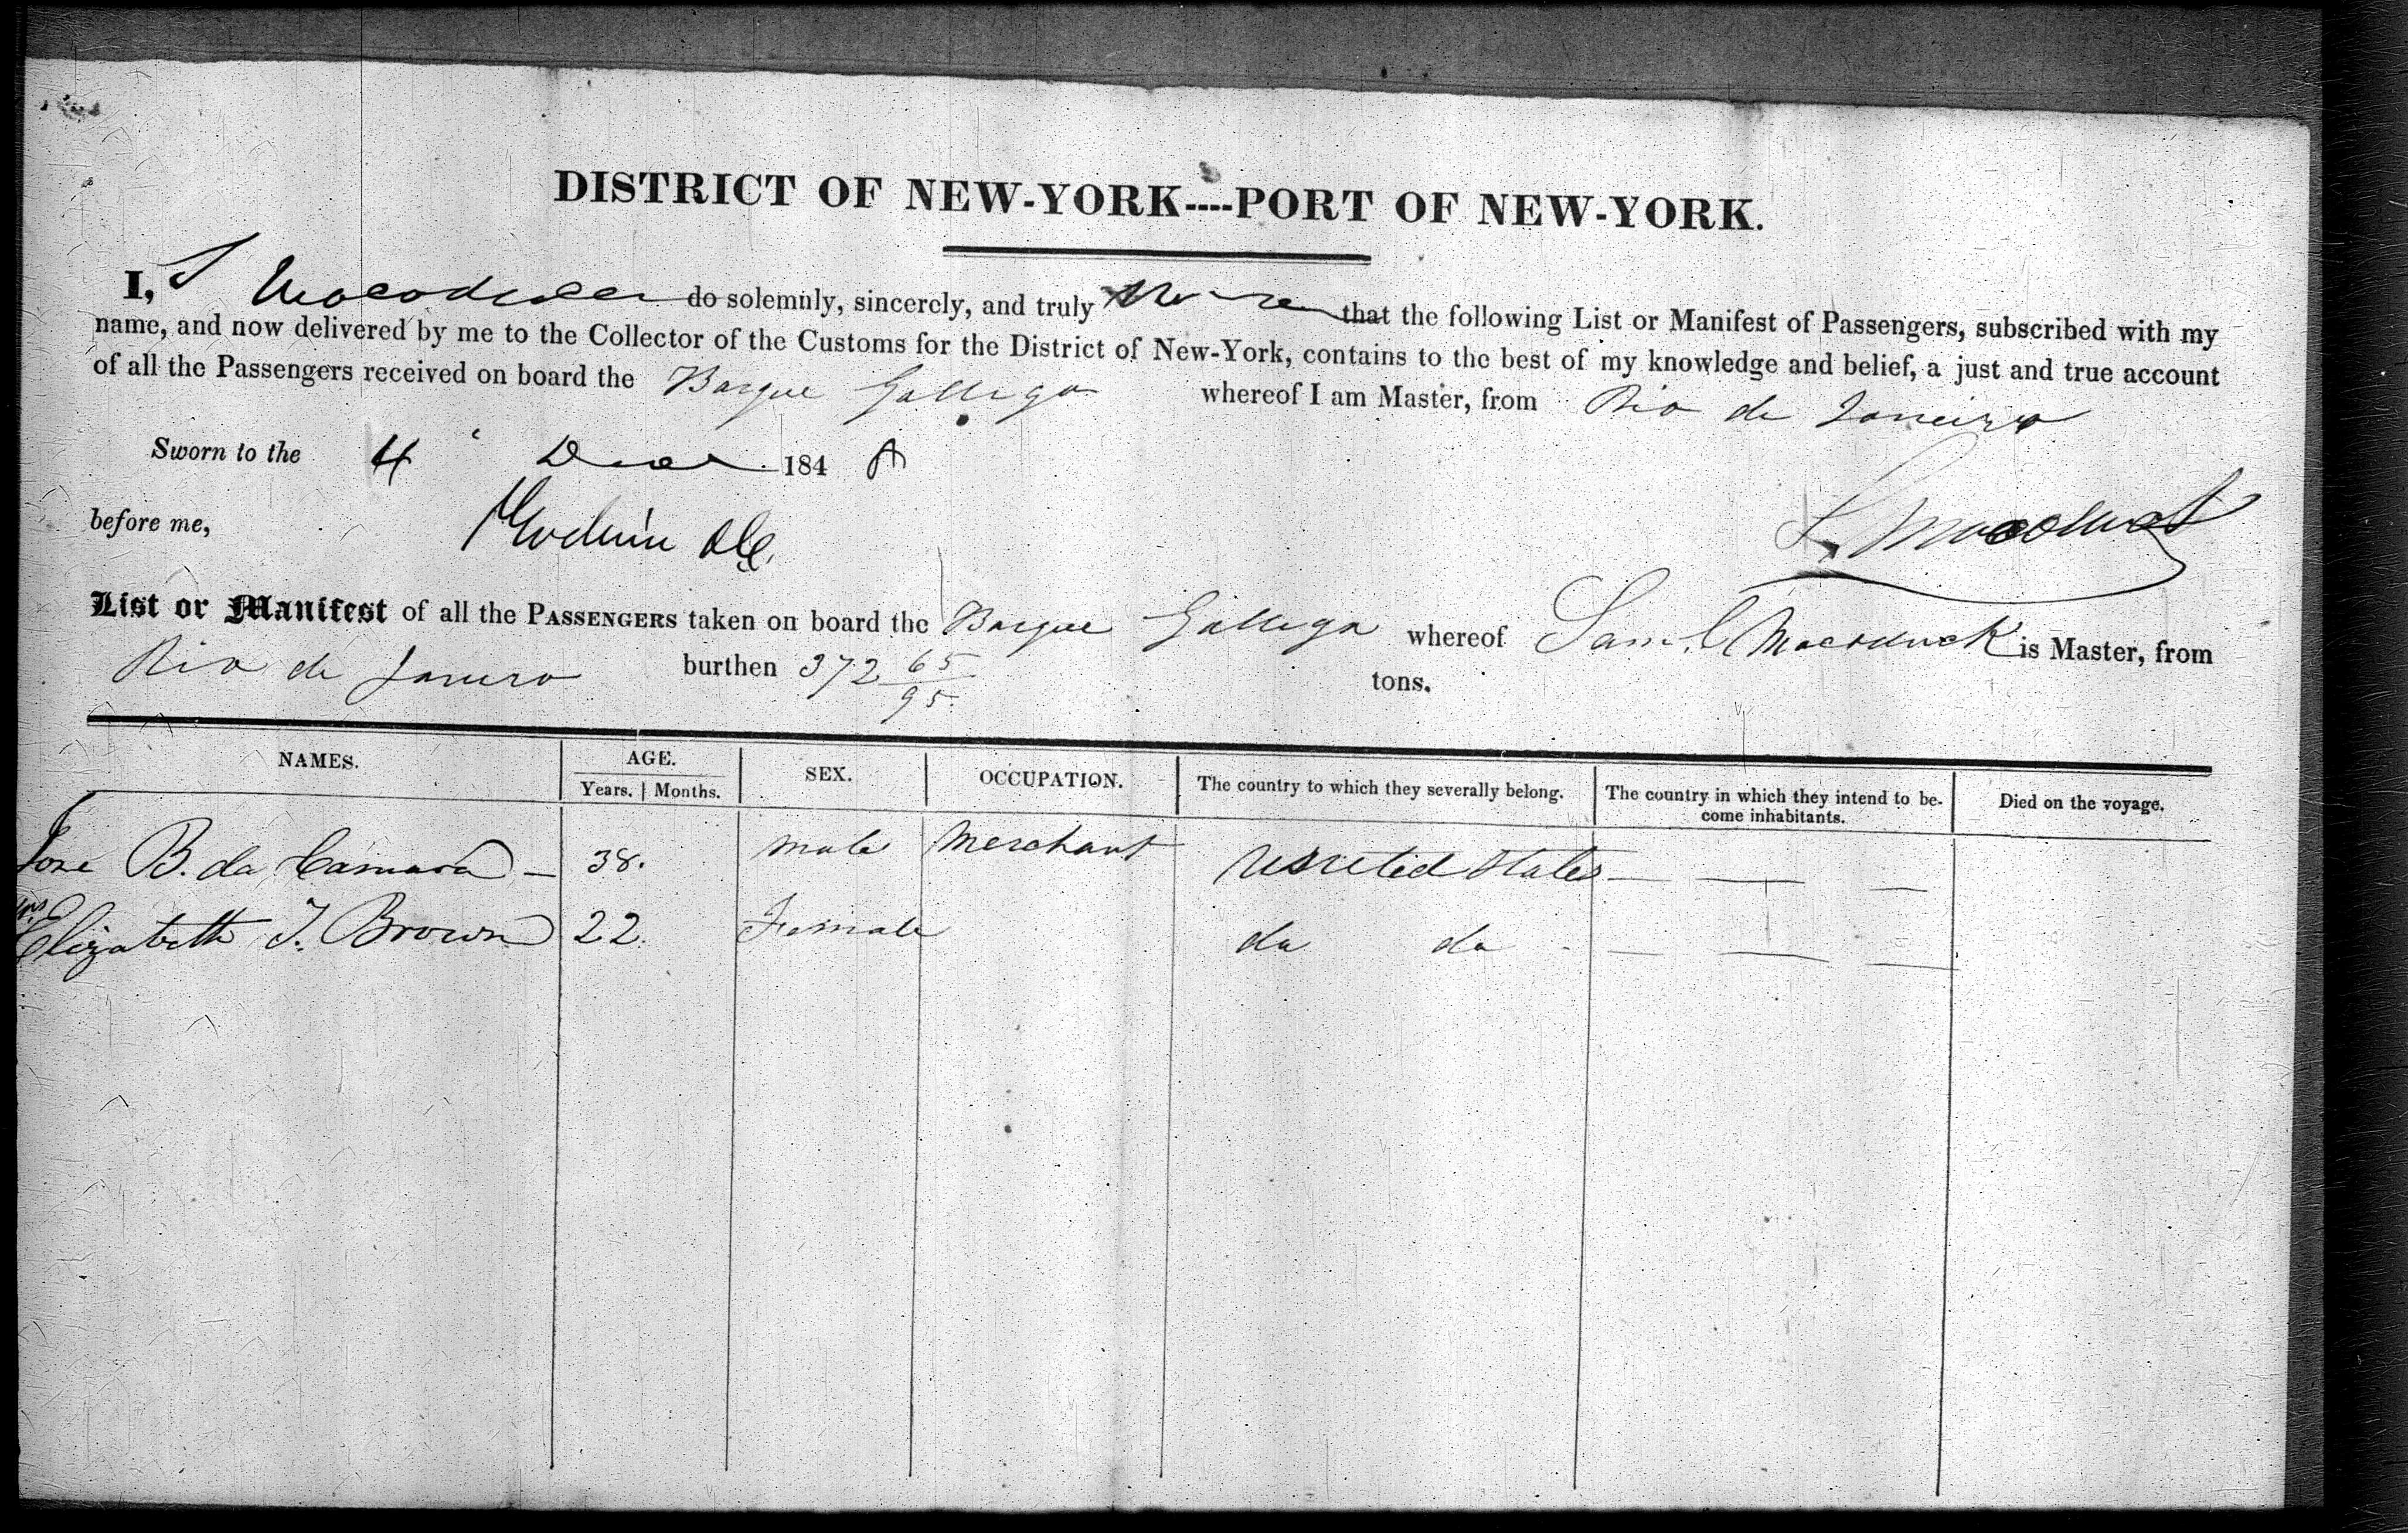 DISTRICT OF NEW-YORK----PORT OF NEW-YORK.
I, S do solemnly, sincerely, and truly that the following List or Manifest of Passengers, subscribed with my
name, and now delivered by me to the Collector of the Customs for the District of New-York, contains to the best of my knowledge and belief, a just and true account
of all the Passengers received on board the Barque Gallego whereof I am Master, from Rio de Janeiro
Sworn to the 4 Dec 184
before me,
List or Manifest of all the PASSENGERS taken on board the Barque Gallego whereof Saml is Master, from
Rio de Janeiro burthen 372 65/95 tons.
NAMES. AGE. SEX. OCCUPATION. The country to which they severally belong. The country in which they intend to be- Died on the voyage.
Years. Months. come inhabitants.
Jose B. da Camara — 38. male Merchant United States — — —
Mrs
Elizabeth T. Brown 22. Female do do — — —